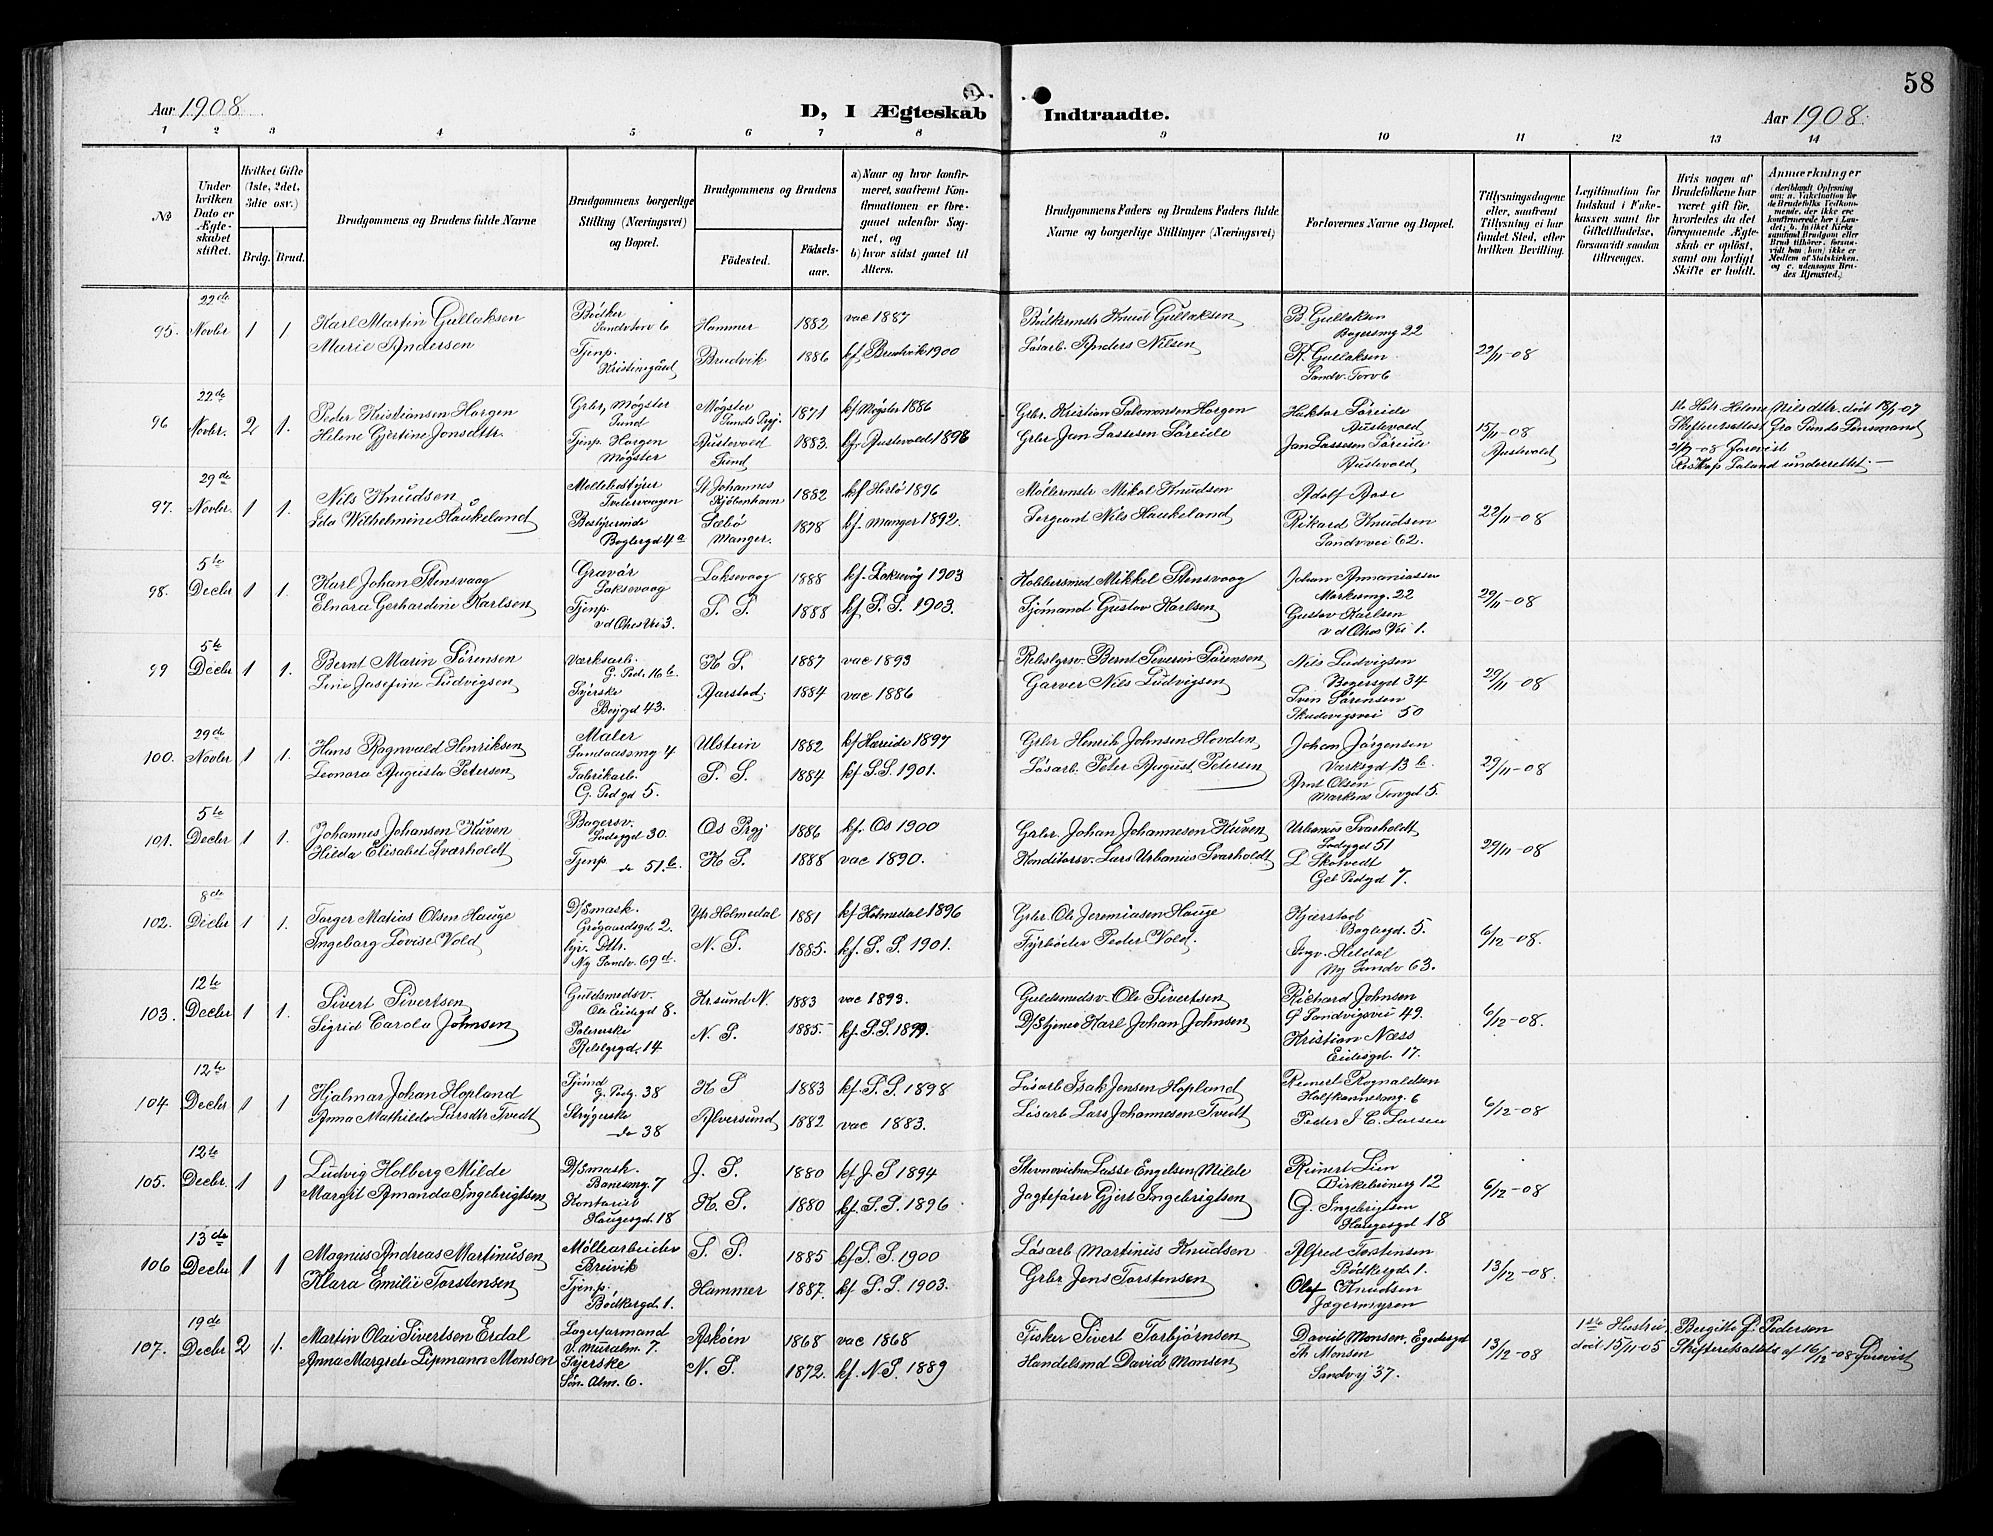 58
Aar 1908.
D, I Ægteskab Indtraadte.
Aar 1908.
1 2 3 4 5 6 7 8 9 10 11 12 13 14
№
Under hvilken Dato er Ægteskabet stiftet.
Hvilket Gifte (1ste, 2det, 3die osv.)
Brdg. Brud.
Brudgommens og Brudens fulde Navne
Brudgommens borgerlige Stilling (Næringsvei) og Bopæl.
Brudgommens og Brudens
Fødested. Fødselsaar.
a) Naar og hvor konfirmeret, saafremt Konfirmationen er foregaaet udenfor Sognet, og
b) hvor sidst gaaet til Alters.
Brudgommens Faders og Brudens Faders fulde Navne og borgerlige Stillinger (Næringsvei)
Forlovernes Navne og Bopæl.
Tillysningsdagene eller, saafremt Tillysning ei har fundet Sted, efter hvilken Bevilling.
Legitimation for Indskud i Enkekassen samt for Giftetilladelse, forsaavidt saadan tiltrænges.
Hvis nogen af Brudefolkene har været gift før, hvorledes da det foregaaende Ægteskab er opløst, samt om lovligt Skifte er holdt.
Anmærkninger
95. 22de Novbr 1 1 Karl Martin Gullaksen Bødker Sandv. torv 6 Hammer 1882 vac 1887 Bødkermstr Knut Gullaksen B. Gullaksen Bagersmg 22
Marie Andersen Tjenp. Kristinegård Brudvik 1886 kf. Brudvik 1900 Løsarb. Anders Nilsen K. Gullaksen Sandv. Torv 6 22/11-08
96 22de Novbr. 2 1. Peder Kristiansen Horgen Grbr, Møgster Sund Møgster Sunds Prgj 1871 kf Møgster 1886 Grbr. Kristian Salomonsen Horgen Søreide Austevold 15/11-08 Austevold
Helene Gjertine Jonsdtr. Tjenp. Horgen Møgster Austevold Sund 1883. kf. Austevold 1898 Grbr Jan Lassesen Søreide Jan Lassesen Søreide Austevold
Helene Nilsdtr. død 18/7-07 Skifteretsattest fra Sunds Lensmand 21/9-08 forevist underrettet.
97. 29de Novbr 1 1. Nils Knudsen Møllebestyrer St Johannes Kjøbenhavn 1882 kf Herlø 1896 Møllermstr Mikal Knudsen Adolf Aase
Ida Wilhelmine Haukeland Bestyrerinde Boglergd 4a Sæbø Manger. 1878 kf. Manger 1892. Sergeant Nils Haukeland Rikard Knudsen Sandv.vei 62. 22/11-08
98. 5te Decbr 1 1. Karl Johan Stensvaag Gravør Laksevaag Laksevaag 1888 kf. Laksevåg 1903 Kobbersmed Mikkel Stensvaag Johan Ananiassen Markesmg. 22
Elnora Gerhardine Karlsen Tjenp. S. S. 1888 kf. S. S. 1903. Sjømand Gustav Karlsen Gustav Karlsen 29/11-08
99 5te Decbr 1 1. Bernt Marin Sørensen Værksarb. G. Ped. 16b K S. 1887 vac 1893 Rebslgrsv. Bernt Severin Sørensen Nils Ludvigsen Bagersgd 34
Sine Josefine Ludvigsen Syerske 43. Aarstad. 1884 vac 1886 Garver Nils Ludvigsen Sven Sørensen Skudevigsvei 50 29/11-08
100. 29de Novbr 1 1. Hans Ragnvald Henriksen Maler Sandaasmg 4 Ulstein 1882 kf Hareide 1897 Grbr Henrik Johnsen Hovden Johan Jørgensen Værksgd 13b
Leonora Augusta Petersen Fabrikarb. G. Ped gd 5. S. S. 1884 kf. S.S. 1901. Løsarb. Peter August Petersen Arnt Olsen Markens Torvgd 5. 29/11-08
101. 5te Decbr 1 1. Johannes Johansen Kuven Bagersv. Ladegd 30. Os Prgj 1886 kf. Os 1900 Grbr. Johan Johannesen Kuven Urbanus Svarholdt 51
Hilda Elisabet Svarholdt Tjenp do 51.b K S. 1888 vac 1890. Konditorsv. Lars Urbanus Svarholdt L Skotvedt 7. 29/11-08
102. 8de Decbr 1 1. Torger Matias Olsen Hauge D/Smask. Grøgaardsgd 2. Ytr Holmedal 1881 kf Holmedal 1896 Grbr. Ole Jeremiasen Hauge Kjærstad Boglergd. 5.
Ingeborg Lovise Vold Ny Sandv. 69d. N. S. 1885. kf. S. S. 1901. Fyrbøder Peder Vold. Ingv. Hildal Ny Sandv 63. 6/12-08.
103. 12te Decbr 1 1. Sivert Sivertsen Guldsmedsv. Ole Eidesgd 8. Kr.sund N. 1883 vac 1893. Guldsmedsv. Ole Sivertsen Richard Johnsen G Sandvigsvei 49
Sigrid Carola Johnsen Polererske Rebslgrgd. 14 N. S. 1885- kf. S.S. 1899. D/Stjener Karl Johan Johnsen Kristian Næss Eidesgd 17. 6/12-08.
104. 12te Decbr 1 1 Hjalmar Johan Hopland Sjømd G. Pedg. 38 K S 1883 kf. S. S. 1898 Løsarb Isak Jensen Hopland Reinert Ragnaldsen Halfkannesmg. 6
Anna Mathilde Larsdtr Tvedt Strygerske do 38 Alversund 1882 vac 1883. Løsarb Lars Johannesen Tvedt Peder J C. Larsen 6/12-08
105. 12te Decbr. 1 1 Ludvig Holberg Milde D/Smask. Banesmg. 7 J. S. 1880 kf. J. S 1894 Lasse Engelsen Milde Reinert Lien Birkebeinerg 12
Margit Amanda Ingebrigtsen Haugesgd. 18 K. S. 1880 kf. S. S. 1896 Jagtefører Gjert Ingebrigtsen G. Ingebrigtsen Haugesgd 18 6/12-08
106 13de Decbr 1 1 Magnus Andreas Martinusen Møllearbeider Breivik S. S. 1885 kf S. S. 1900 Løsarb Martinus Knudsen Alfred Torstensen Bødkergd. 1.
Klara Emilie Torstensen Tjenp. Bødkergd. 1. Hammer 1887. kf. S. S. 1903. Grbr. Jens Torstensen Olaf Knudsen Jægermyren 13/12-08.
107. 19de Decbr 2 1. Martin Olai Sivertsen Erdal Lagerformand V. Muralm. 7. Askøen 1868 vac 1868 Fisker Sivert Torbjørnsen David Monsen,
Anna Margrete Lipmana Monsen Syerske Søn. Alm. 6. N. S. 1872. kf. N. S. 1889 Handelsmd David Monsen Th Monsen Sandvg 37. 13/12-08
1ste Hustru, Birgitte J. Pedersen død 15/11-05 Skifteretsattest af 16/12-08 forevist